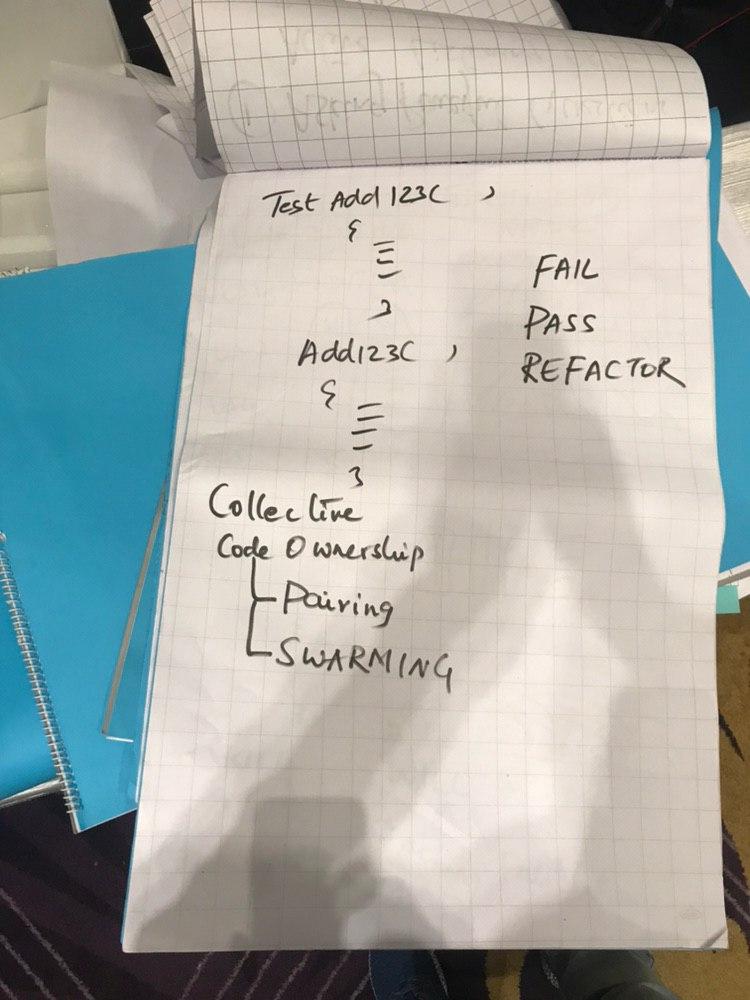 Test Add123( )
{
}
Add123( )
{
}
FAIL
PASS
REFACTOR
Collective
Code Ownership
Pairing
SWARMING